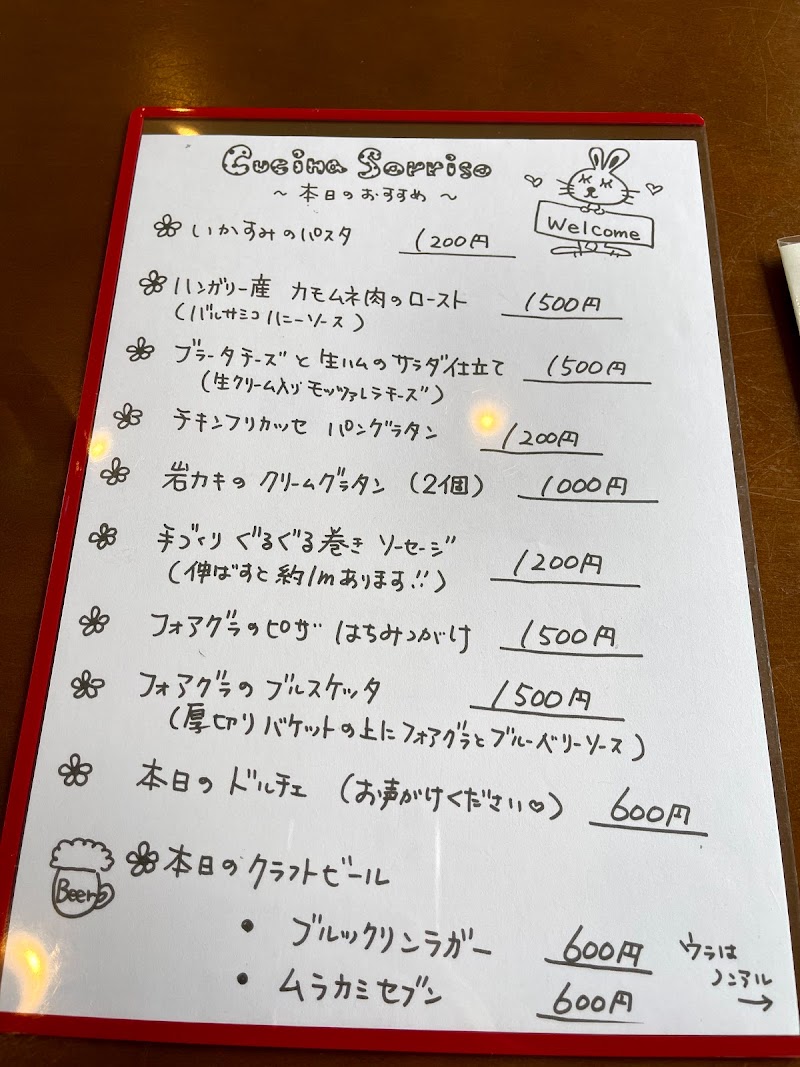 Cucina Sorriso
~ 本日のおすすめ ~
Welcome
いかすみのパスタ 1200円
ハンガリー産 カモムネ肉のロースト 1500円
(バルサミコハニーソース)
ブラータチーズと生ハムのサラダ仕立て 1500円
(生クリーム入りモッツァレラチーズ)
チキンフリカッセ パングラタン 1200円
岩カキのクリームグラタン (2個) 1000円
手づくりぐるぐる巻きソーセージ 1200円
(伸ばすと約1mあります!!)
フォアグラのピザ はちみつがけ 1500円
フォアグラのブルスケッタ 1500円
(厚切りバケットの上にフォアグラとブルーベリーソース)
本日のドルチェ (お声がけください♡) 600円
Beer
本日のクラフトビール
• ブルックリンラガー 600円
• ムラカミセブン 600円
ウラは
ノンアル
→